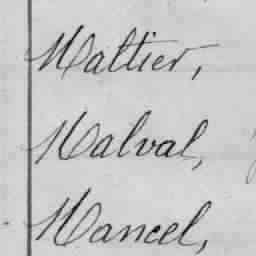 Maltier,
Malval,
Mancel,